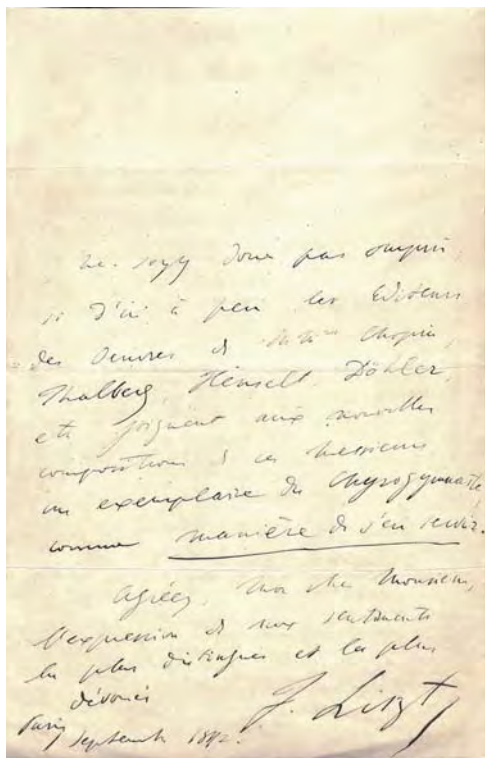 Ne soyez donc pas surpris,
si d'ici à peu les Editeurs
des Oeuvres de M.M. Chopin,
Thalberg, Henselt, Döhler,
etc joignent aux nouvelles
compositions de ces Messieurs
un exemplaire du Chyrogymnaste,
comme manière de s'en servir.
Agréez, mon cher Monsieur,
l'expression de mes sentiments
les plus distingués et les plus
dévoués
F. Liszt
Paris
Septembre 1842.